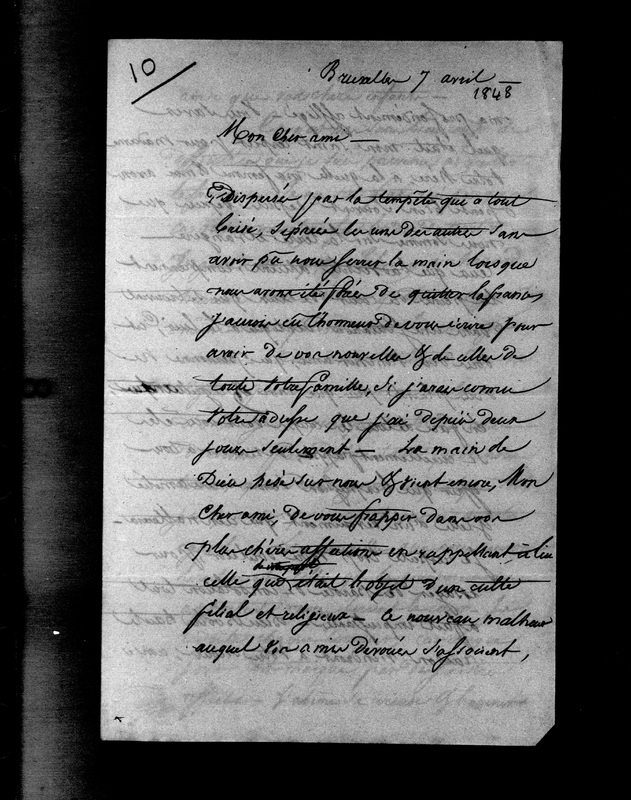 10
Bruxelles 7 avril —
1848
Mon cher ami —
Dispersés par la tempête qui a tout
brisé, séprées les uns des autres sans
avoir pu nous serrer la main lorsque
nous avons été forcés de quitter la france
j'aurois eu l'honneur de vous écrire pour
avoir de vos nouvelles & de celles de
toute votre famille, si j'avais connu
votre adresse que j'ai depuis deux
jours seulement — La main de
Dieu pèse sur nous & vient encore, Mon
cher ami, de vous frapper dans vos
plus chères affections en rappellant à lui
celle qui était l'objet d'un culte
filial et religieux — ce nouveau malheur
auquel vos amis dévoués s'associent,